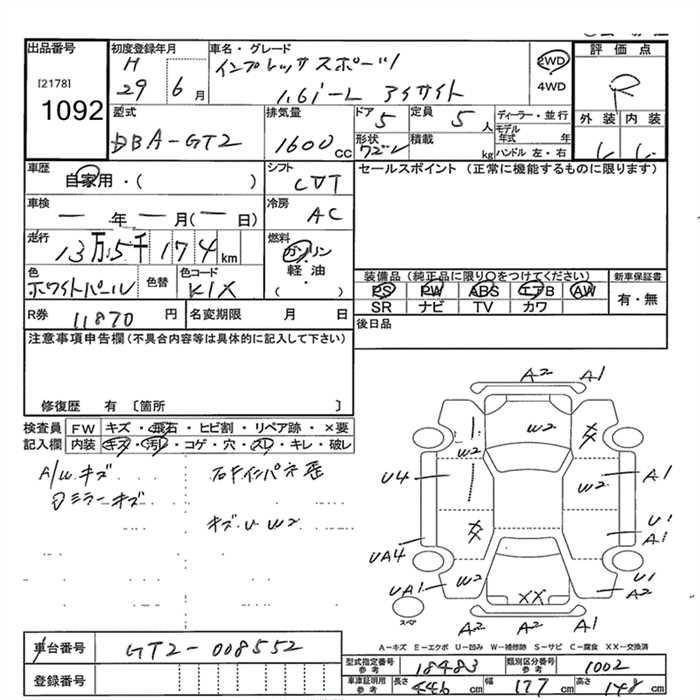 出品番号
[2178]
1092
初度登録年月
H 29 6月
車名・グレード
インプレッサスポーツ
1.6i-L アイサイト
2WD
4WD
評価点
R
外装 内装
型式
DBA-GT2
排気量
1600 cc
ドア 5
形状 ワゴン
定員 5人
積載 kg
ディーラー・並行
モデル年式 年
ハンドル 左・右
車歴
自家用・( )
シフト
CVT
セールスポイント (正常に機能するものに限ります)
車検
— 年 — 月(— 日)
冷房
AC
走行
13万5千174km
燃料
ガソリン
軽油
( )
色
ホワイトパール
色替
色コード
K1X
装備品(純正品に限り○をつけてください)
PS PW ABS エアB AW
SR ナビ TV カワ
新車保証書
有・無
R券 11870円
名変期限 月 日
後日品
注意事項申告欄(不具合内容等は具体的に記入して下さい)
修復歴 有 〔箇所 〕
検査員記入欄
FW キズ・飛石・ヒビ割・リペア跡・×要
内装 キズ・汚レ・コゲ・穴・スレ・キレ・破レ
A/W キズ
ミラーキズ
キズ U W2
A2 A1
W2 W2 XX
U4 W2 A1
XX U1 A1
UA4
UA1 W2 XX U1 A2
スペア
A2 A2 A1
A−キズ E−エクボ U−凹み W−補修跡 S−サビ C−腐食 XX−交換済
車台番号 GT2-008552
登録番号
型式指定番号 参考 18483
類別区分番号 参考 1002
車庫証明用 参考 長さ 446cm 幅 177cm 高さ 148cm